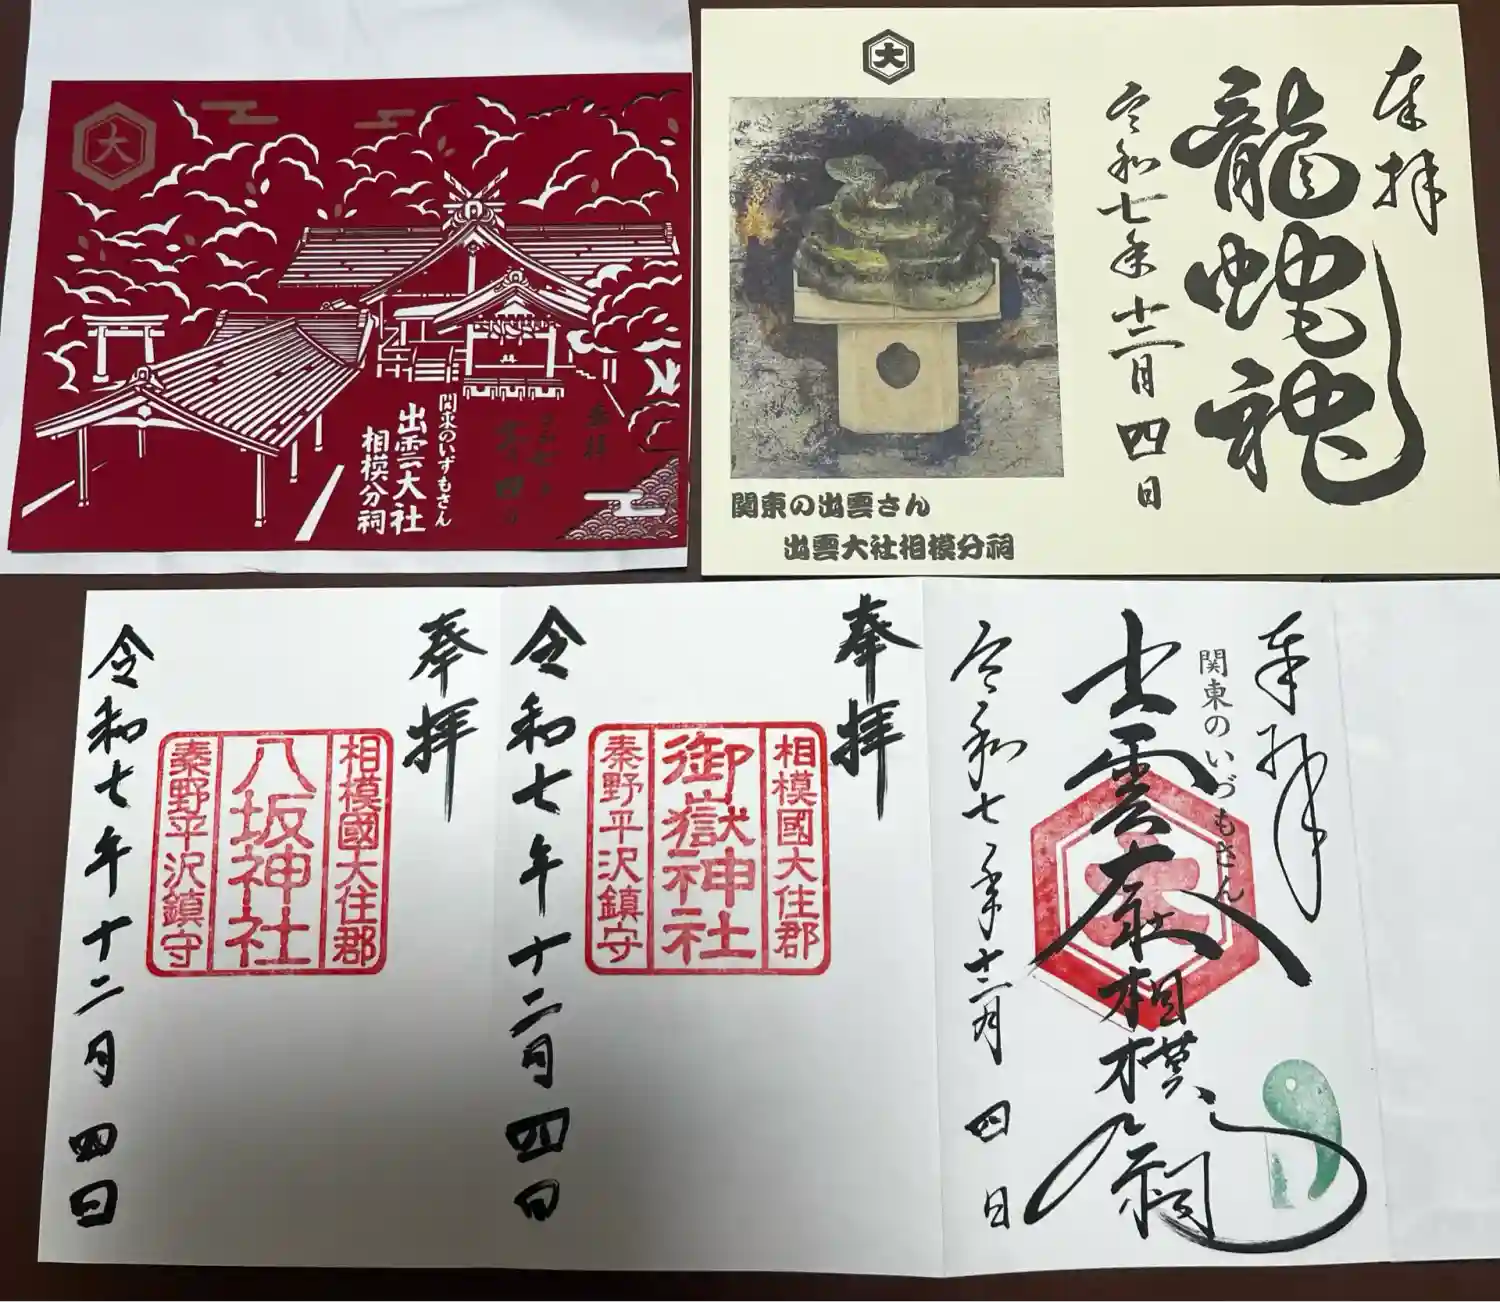 大
関東のいずもさん
出雲大社
相模分祠
奉拝
四日
大
奉拝
龍蛇神
令和七年十二月四日
関東の出雲さん
出雲大社相模分祠
奉拝
相模國大住郡
八坂神社
秦野平沢鎮守
令和七年十二月四日
奉拝
相模國大住郡
御嶽神社
秦野平沢鎮守
令和七年十二月四日
奉拝
関東のいづもさん
出雲大社相模分祠
大
令和七年十二月四日